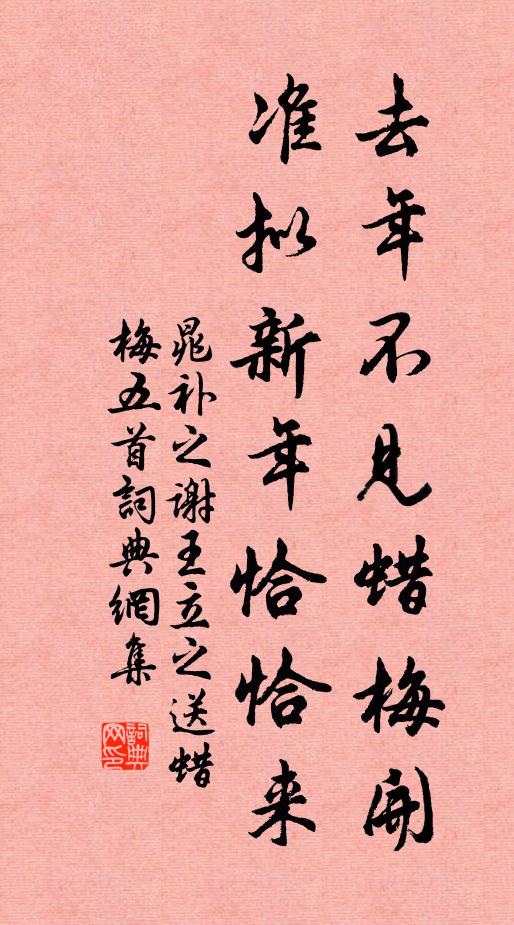 去年不见蜡梅开
准拟新年恰恰来
晁补之谢王立之送蜡
梅五首詞典網集
詞典
网印